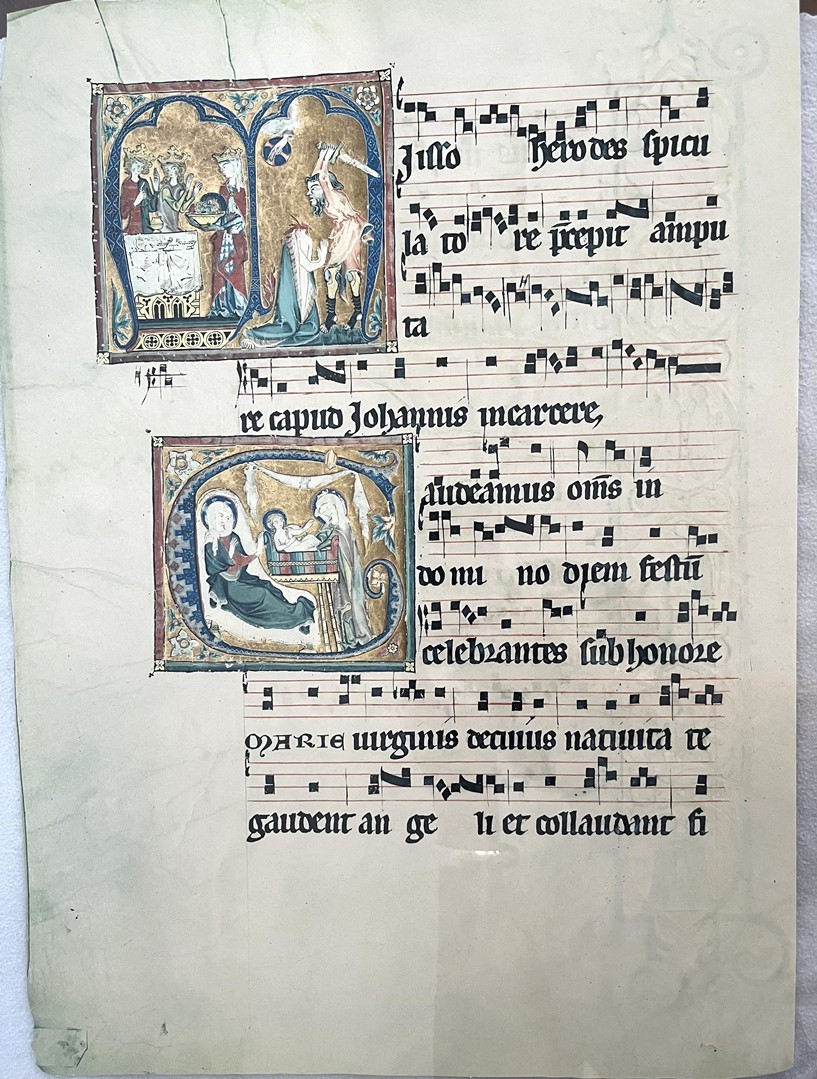 Misso herodes spicu
la to re p̄cepit ampu
ta
re capud Johannis incarcere,
Gaudeamus om̄s in
do mi no diem festū
celebrantes sub honore
MARIE uirginis decuius natiuita te
gaudent an ge li et collaudant fi